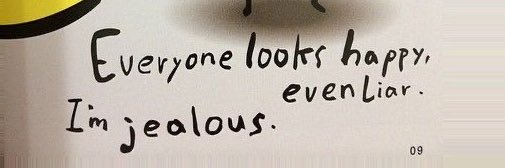 Everyone looks happy,
even Liar.
I'm jealous.
09